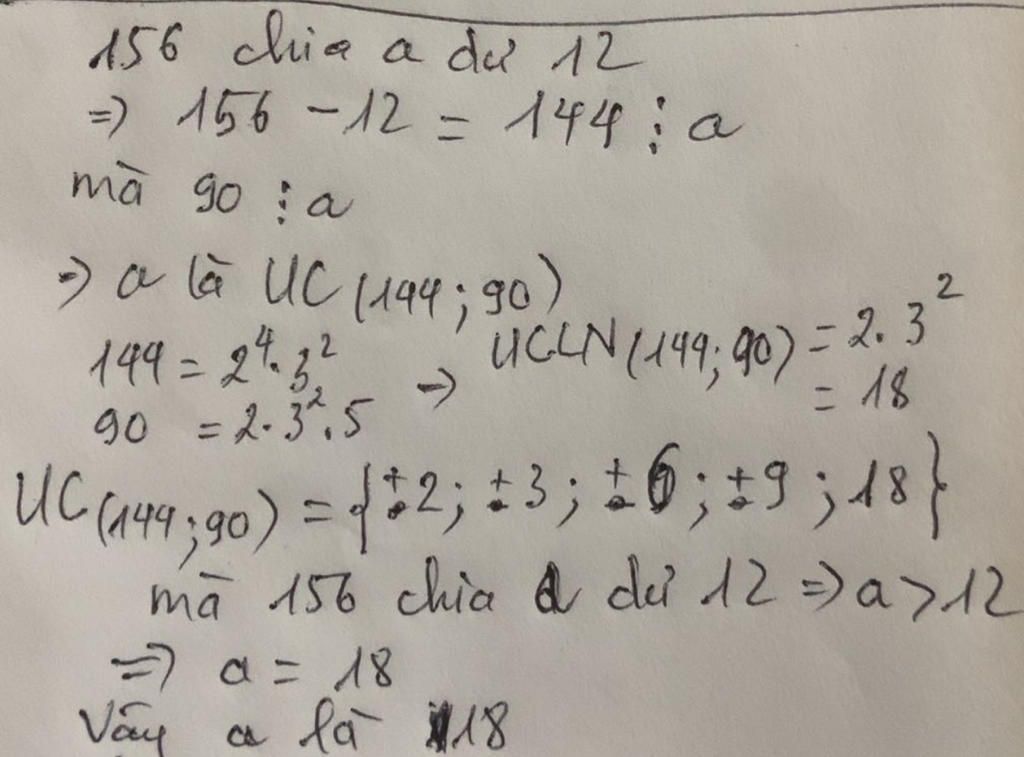 156 chia a dư 12
=> 156 - 12 = 144 ⋮ a
mà 90 ⋮ a
=> a là UC(144; 90)
144 = 2⁴.3²
90 = 2.3².5
=> UCLN(144; 90) = 2.3²
= 18
UC(144; 90) = {±2; ±3; ±6; ±9; 18}
mà 156 chia a dư 12 => a > 12
=> a = 18
Vậy a là 18